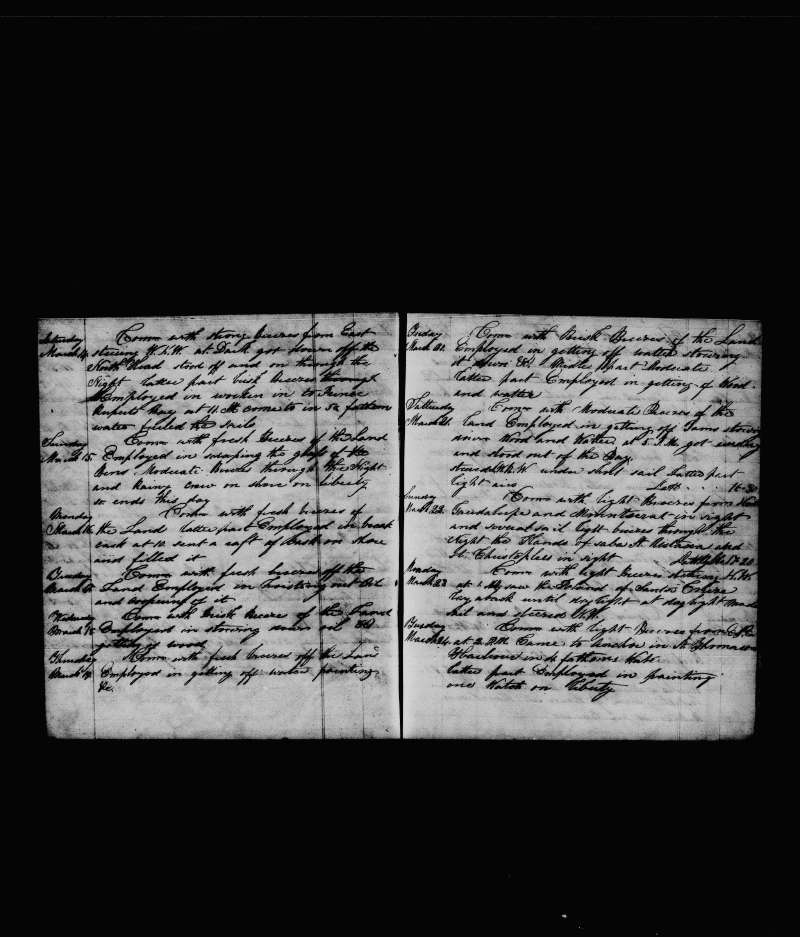 Saturday Comm with strong breezes from East
March 14 steering W.S.W. at Dark got down off the
North Head stood off and on through the
Night latter part brisk Breezes through
Employed in working in to Prince
Ruperts Bay at 11 A.M. come to in 5½ fathom
water furled the Sails
Sunday Comm with fresh Breezes of the Land
March 15 Employed in scraping the of the
Bows Moderate Breeze through the Night
and Rainy crew on shore on liberty
so ends this day
Monday Comm with fresh breezes of
March 16 the Land latter part Employed in break
out at 10 sent a raft of Cask on shore
and filled it
Tuesday Comm with fresh breezes off the
March 17 Land Employed in hoisting out Oil
and coopering of it
Wednesday Comm with brisk Breezes of the Land
March 18 Employed in stowing down oil &
getting of wood
Thursday Comm with fresh breezes off the Land
March 19 Employed in getting off water painting
&c.
Friday Comm with Brisk Breezes of the Land
March 20 Employed in getting off water stowing
it down &c. Middle part Moderate
latter part Employed in getting of Wood
and watter
Satturday Comm with Moderate Breezes of the
March 21 land Employed in getting off Yams stowing
down Wood and Watter at 5 P.M. got
and stood out of the Bay
steered W.N.W under short sail Latter part
light airs Latt 16-30
Sunday Comm with light Breezes from
March 22 Guadalupe and Montserrat in sight
and several sail light breezes through the
Night the Islands of Saba St Ustatia and
St. Christophes in sight Latt 17.20
Monday Comm with light Breezes steering
March 23 at 1 AM saw the Island of Santa Cruze
lay aback until daylight at daylight made
sail and steered
Tuesday Comm with light Breezes from
March 24 at 2 P.M. Came to anchor in St Thomas
Harbour in 4 fathoms Watr
latter part Employed in painting
one Watch on liberty